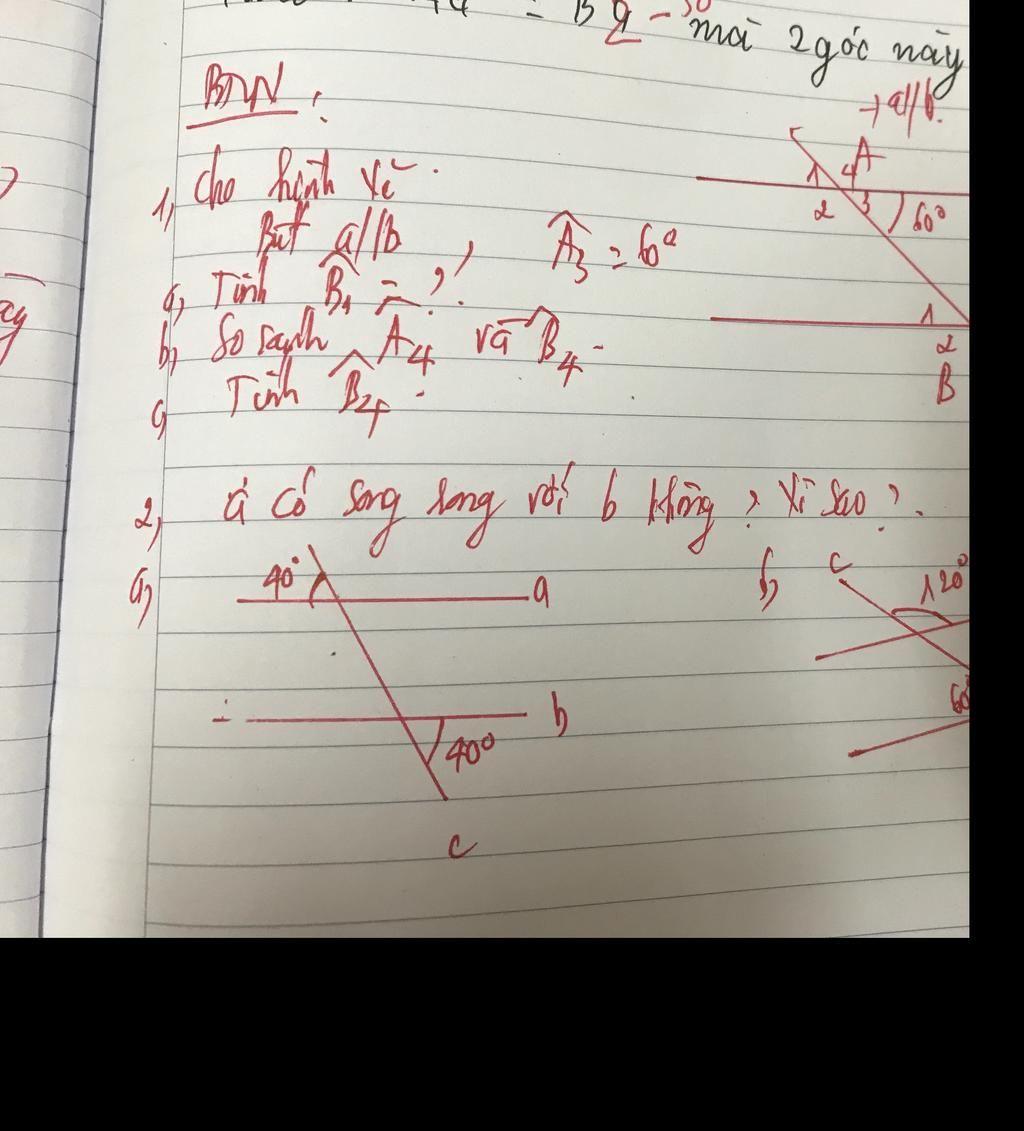 mà 2 góc này
→ a//b.
BTVN :
1, Cho hình vẽ.
Biết a//b , A₃ = 60°
a, Tính B₁ = ?
b, So sánh A₄ và B₄.
c, Tính B₂.
1 4 A
2 3 60°
1
2
B
2, a có song song với b không ? Vì sao ?
a, 40° a
b
40°
c
b, c 120°
60°